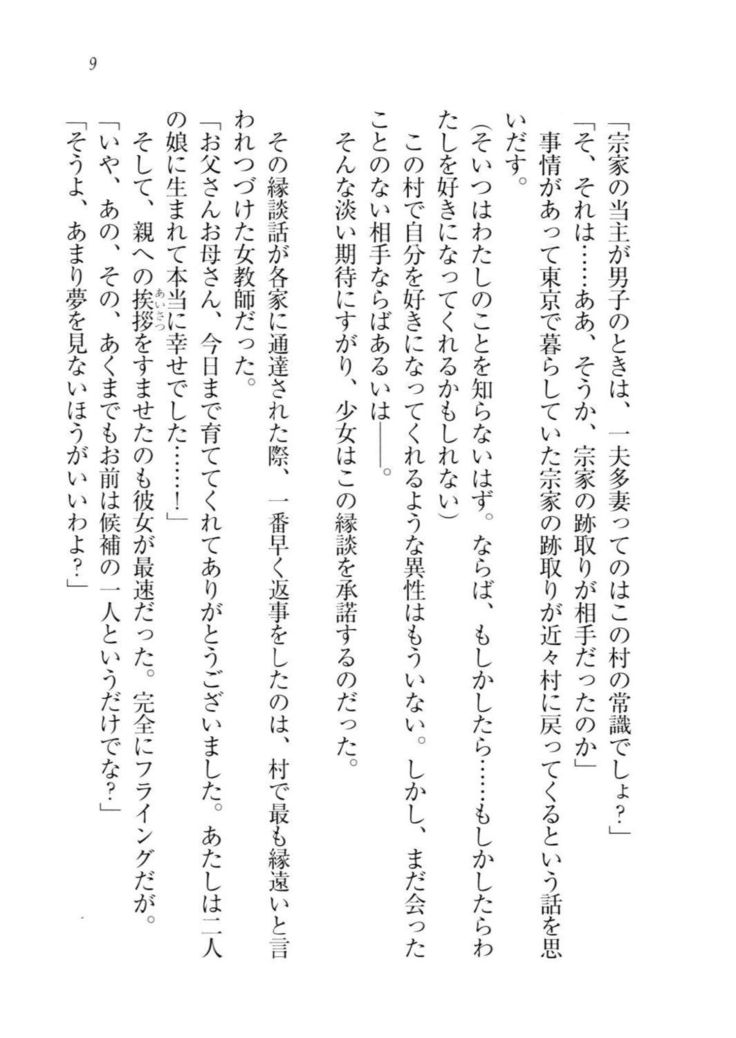 9
「宗家の当主が男子のときは、一夫多妻ってのはこの村の常識でしょ？」
「そ、それは……ああ、そうか、宗家の跡取りが相手だったのか」
　事情があって東京で暮らしていた宗家の跡取りが近々村に戻ってくるという話を思
いだす。
（そいつはわたしのことを知らないはず。ならば、もしかしたら……もしかしたらわ
たしを好きになってくれるかもしれない）
　この村で自分を好きになってくれるような異性はもういない。しかし、まだ会った
ことのない相手ならばあるいは――。
　そんな淡い期待にすがり、少女はこの縁談を承諾するのだった。
　その縁談話が各家に通達された際、一番早く返事をしたのは、村で最も縁遠いと言
われつづけた女教師だった。
「お父さんお母さん、今日まで育ててくれてありがとうございました。あたしは二人
の娘に生まれて本当に幸せでした……！」
　そして、親への挨拶あいさつをすませたのも彼女が最速だった。完全にフライングだが。
「いや、あの、その、あくまでもお前は候補の一人というだけでな？」
「そうよ、あまり夢を見ないほうがいいわよ？」